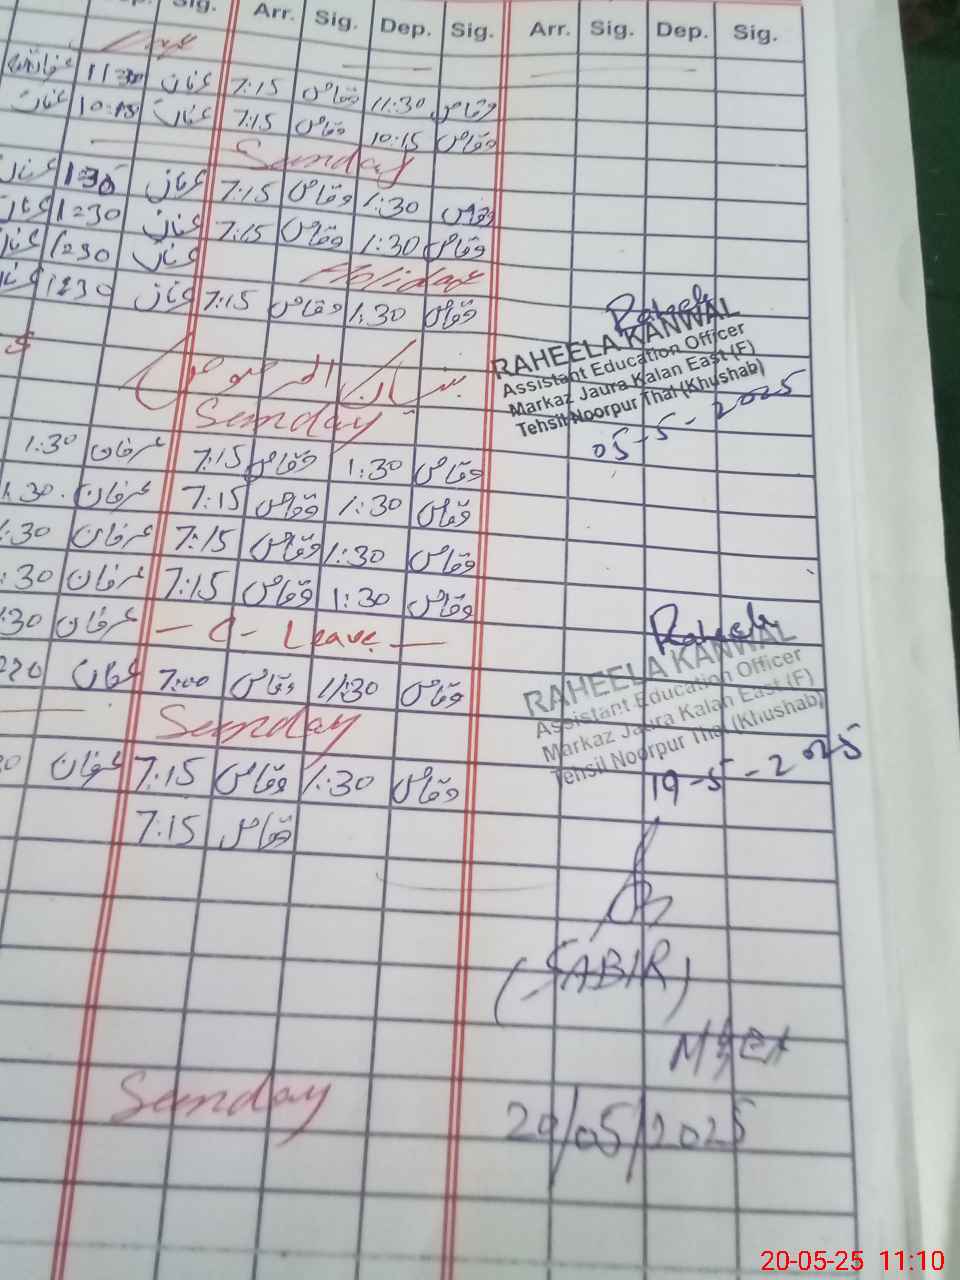 Sig. Arr. Sig. Dep. Sig. Arr. Sig. Dep. Sig.
11:30 7:15 وقاص 11:30 وقاص
10:15 7:15 وقاص 10:15 وقاص
Sunday
1:30 7:15 وقاص 1:30 وقاص
1:30 7:15 وقاص 1:30 وقاص
1:30 Holiday
1:30 7:15 وقاص 1:30 وقاص
Raheela
RAHEELA KANWAL
Assistant Education Officer
Markaz Jaura Kalan East (F)
Tehsil Noorpur Thal (Khushab)
05-5-2025
Sunday
1:30 عرفان 7:15 وقاص 1:30 وقاص
1:30 عرفان 7:15 وقاص 1:30 وقاص
1:30 عرفان 7:15 وقاص 1:30 وقاص
:30 عرفان 7:15 وقاص 1:30 وقاص
:30 عرفان — C- Leave —
عرفان 7:00 وقاص 11:30 وقاص
Raheela
RAHEELA KANWAL
Assistant Education Officer
Markaz Jaura Kalan East (F)
Tehsil Noorpur Thal (Khushab)
19-5-2025
Sunday
30 عرفان 7:15 وقاص 1:30 وقاص
7:15 وقاص
(SABIR)
Sunday
20/05/2025
20-05-25 11:10